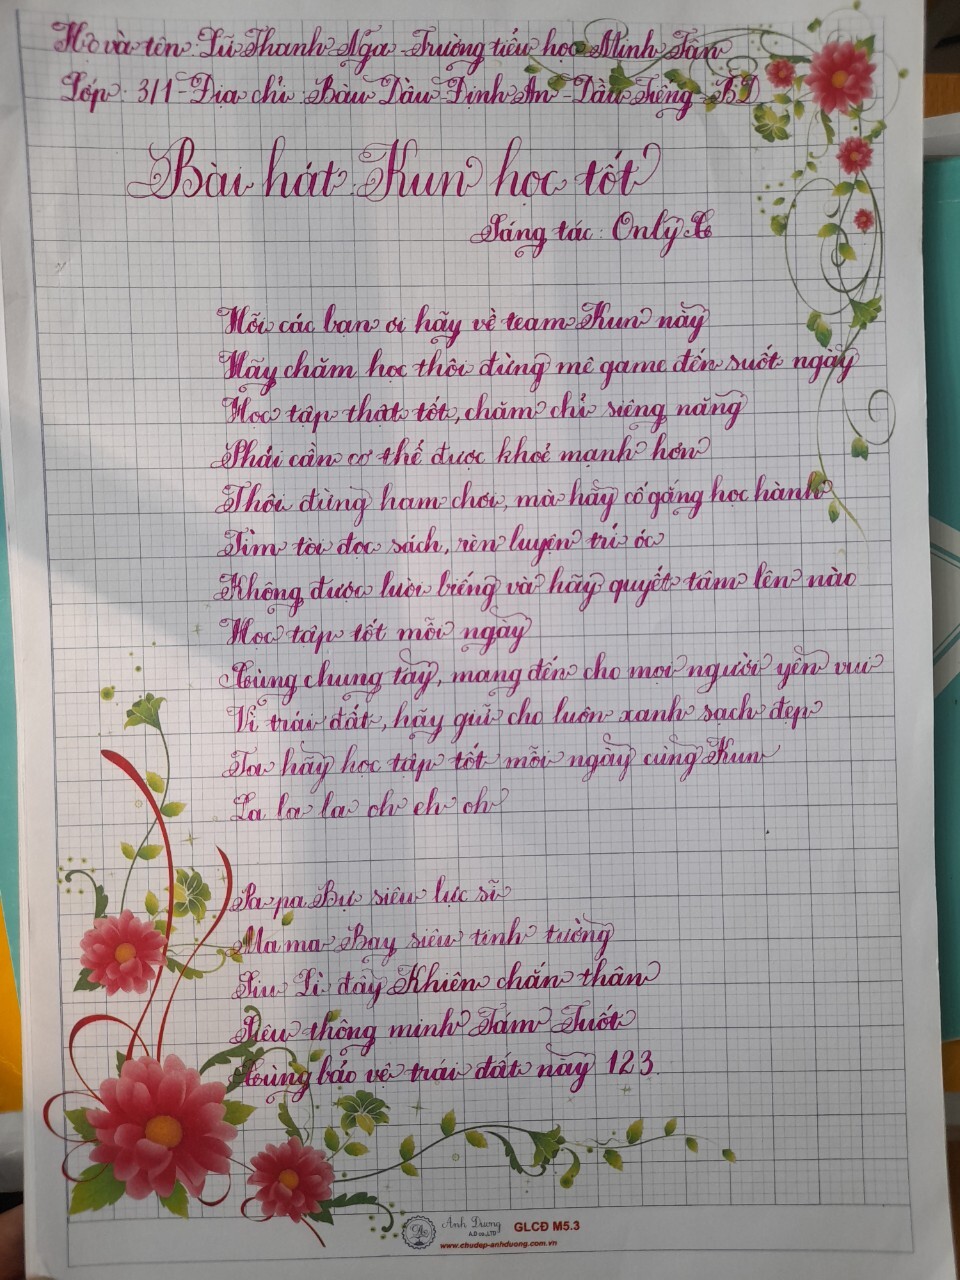 Họ và tên: Lũ Thanh Nga - Trường tiểu học Minh Tân
Lớp: 3/1 - Địa chỉ: Bàu Dầu - Định An - Dầu Tiếng - BD
Bài hát: Kun học tốt
Sáng tác: Only C
Hỡi các bạn ơi hãy về team Kun này
Hãy chăm học thôi đừng mê game đến suốt ngày
Học tập thật tốt, chăm chỉ siêng năng
Phải cần cơ thể được khoẻ mạnh hơn
Thôi đừng ham chơi, mà hãy cố gắng học hành
Tìm tòi đọc sách, rèn luyện trí óc
Không được lười biếng và hãy quyết tâm lên nào
Học tập tốt mỗi ngày
Cùng chung tay, mang đến cho mọi người yên vui
Vì trái đất, hãy giữ cho luôn xanh sạch đẹp
Ta hãy học tập tốt mỗi ngày cùng Kun
La la la oh eh oh
Pa pa Bự siêu lực sĩ
Ma ma Bay siêu tinh tường
Liu Lì đây Khiên chắn thân
Siêu thông minh Tám Tuốt
Cùng bảo vệ trái đất này 123.
Anh Dương
A.D co.,LTD
GLCĐ M5.3
www.chudep-anhduong.com.vn